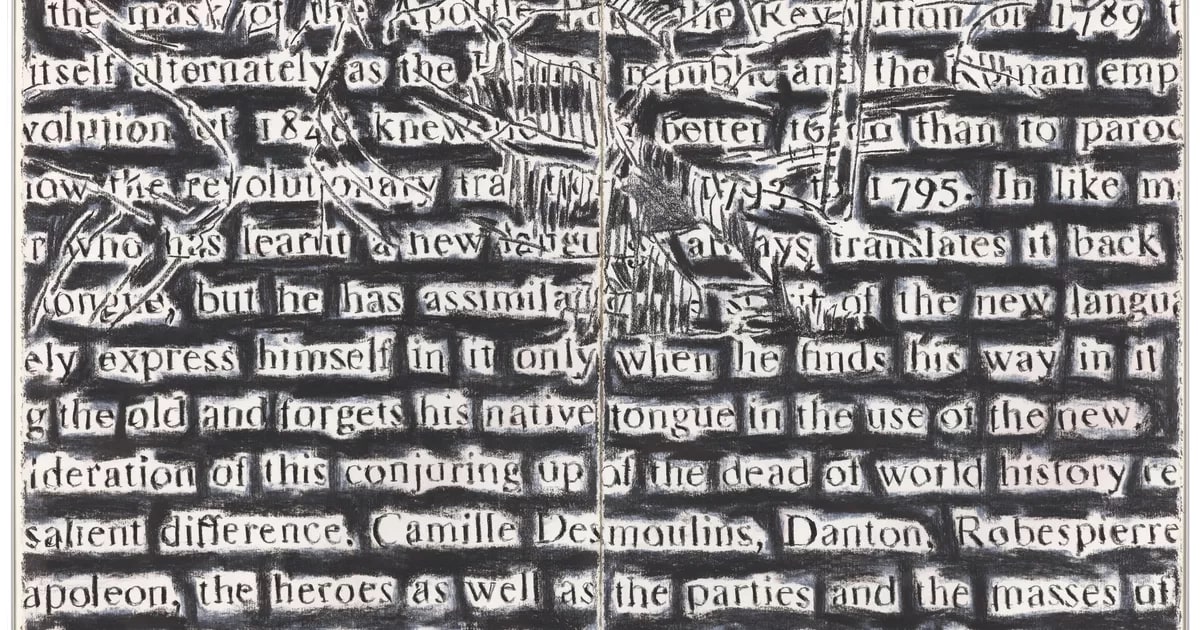 the mask of the Apostle the Revolution of 1789
itself alternately as the republic and the Roman emp
volution of 1848 knew no better to do than to paroc
now the revolutionary tra 1793 to 1795. In like m
r who has learnt a new langu always translates it back
tongue, but he has assimila the spirit of the new langua
ely express himself in it only when he finds his way in it
g the old and forgets his native tongue in the use of the new.
ideration of this conjuring up of the dead of world history re
salient difference. Camille Desmoulins, Danton, Robespierre
apoleon, the heroes as well as the parties and the masses of